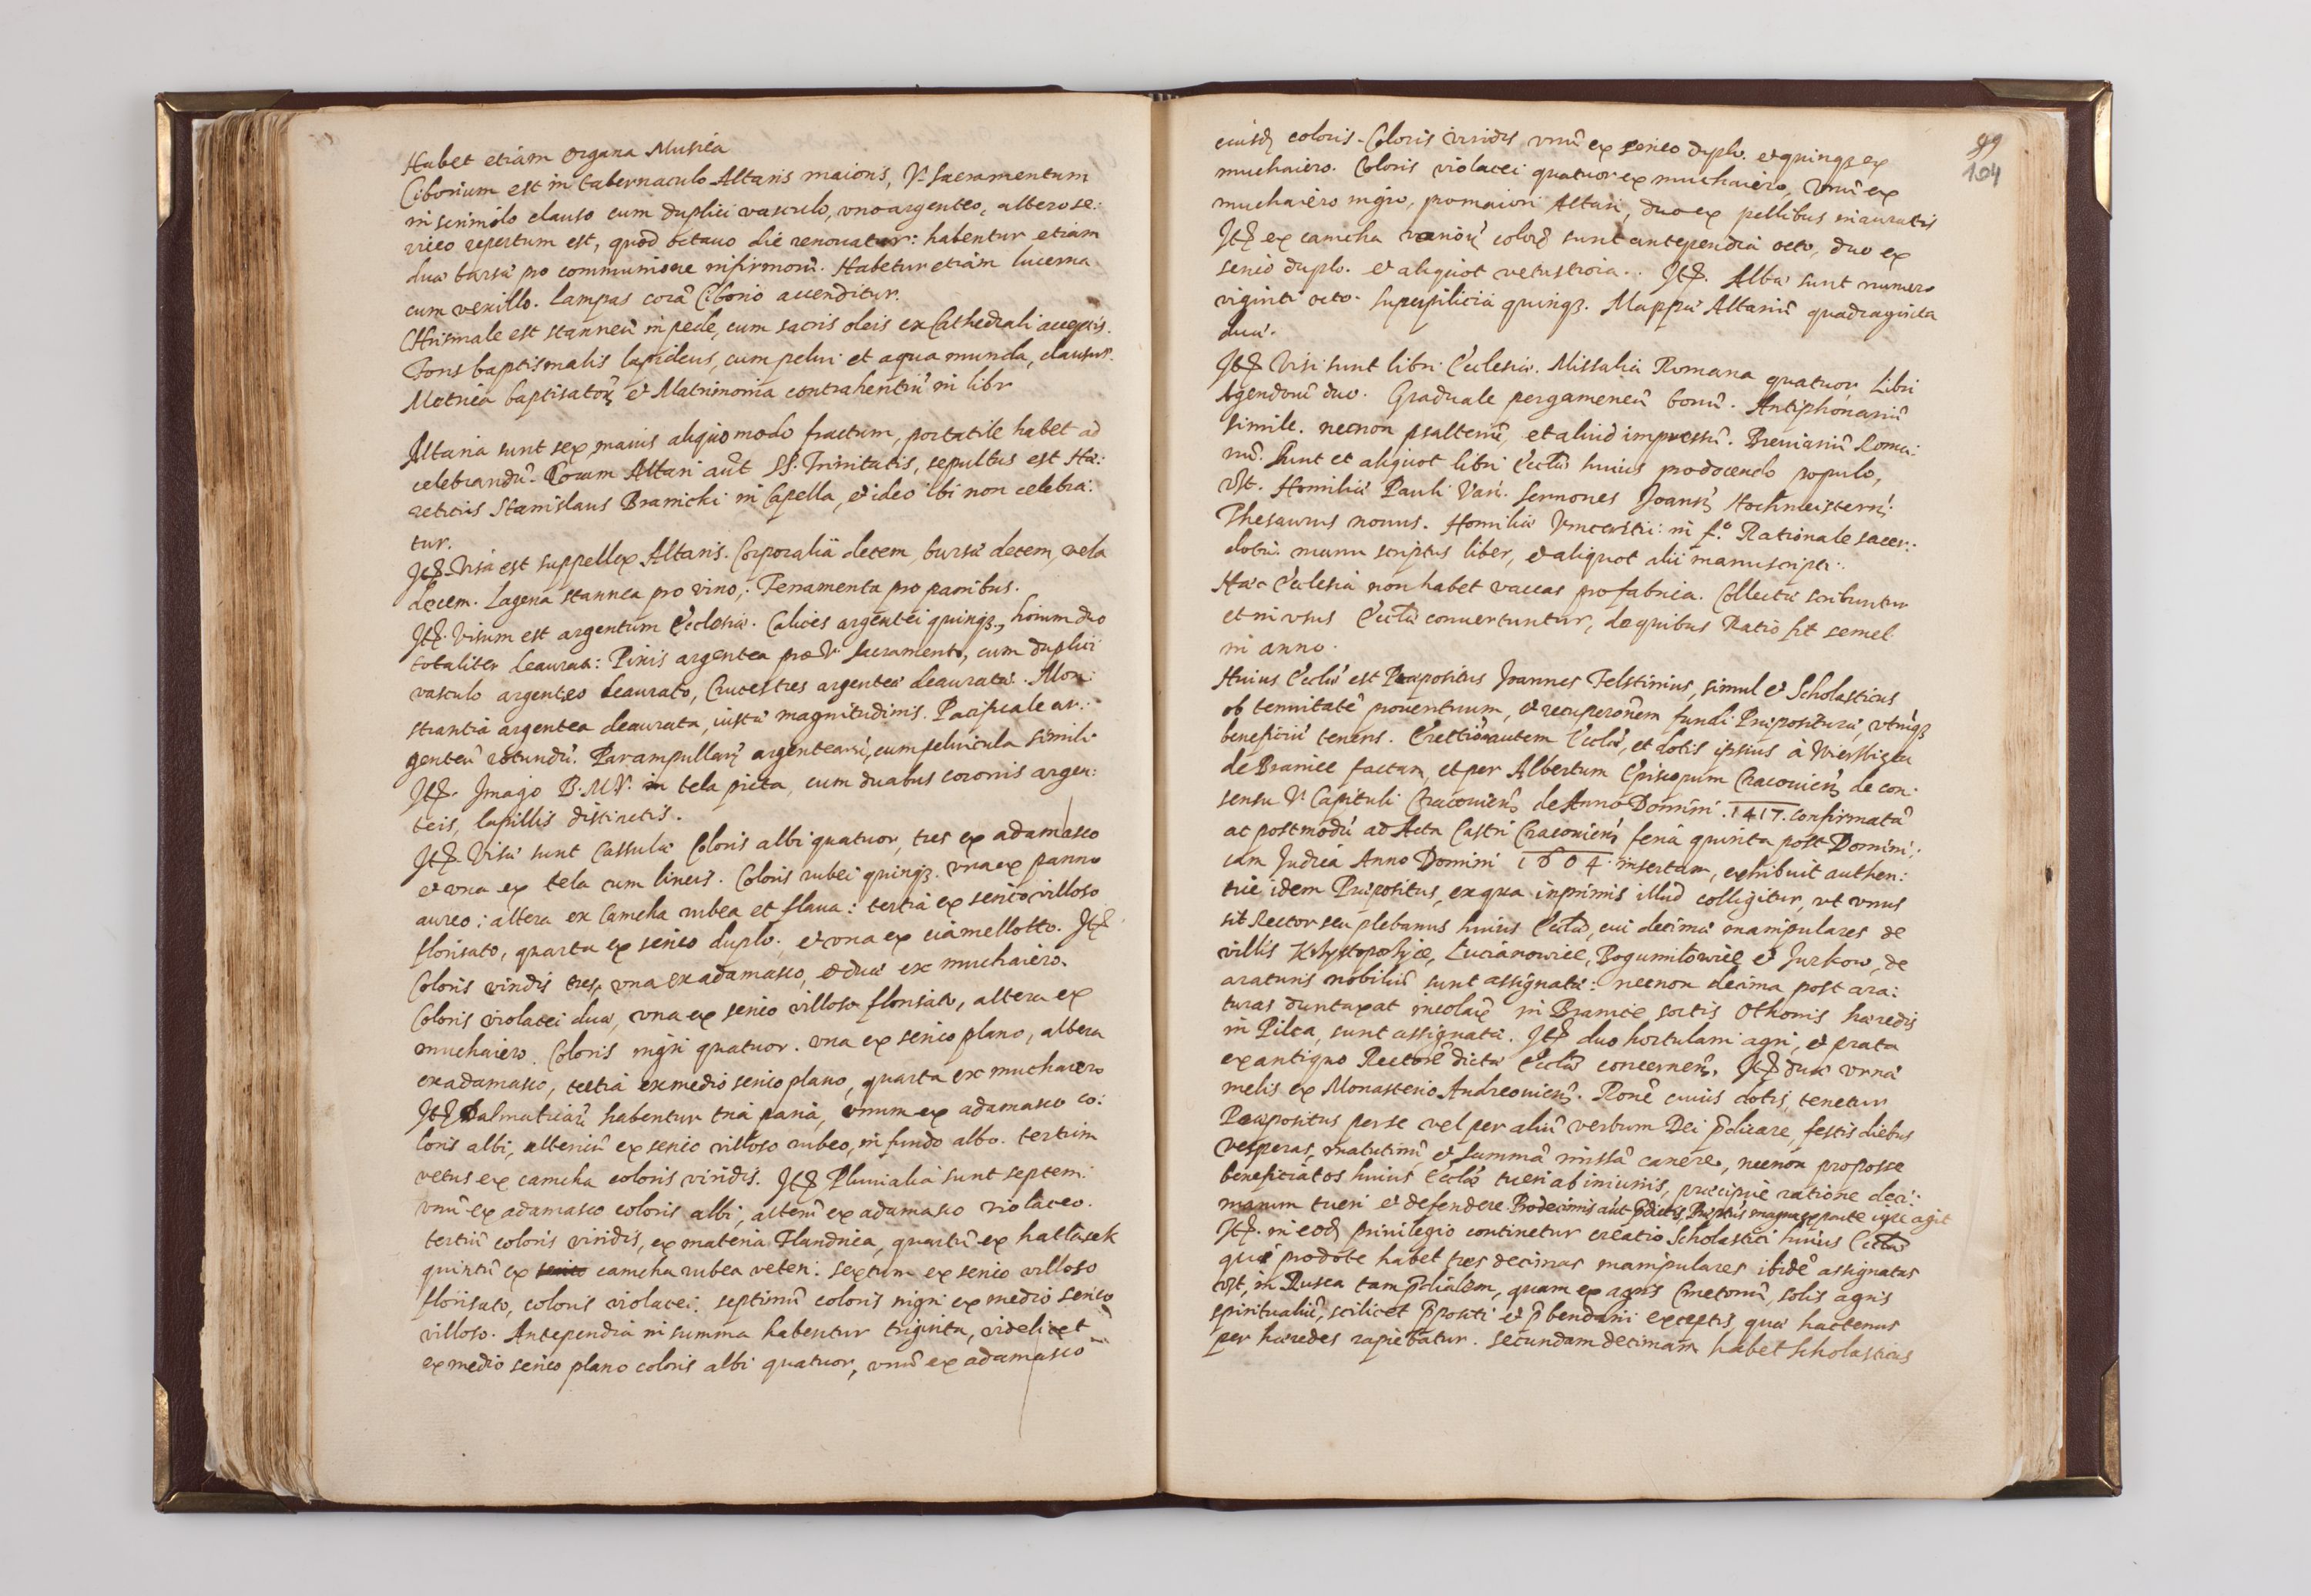 Habet etiam organa Musica
Ciborium est in tabernaculo Altaris maioris, V. Sacramentum
in scriniolo clauso cum duplici vasculo, uno argenteo, altero se:
riceo repertum est, quod octauo die renouatur: habentur etiam
duæ bursæ pro communione infirmorũ. Habetur etiam lucerna
cum vexillo. Lampas corã Ciborio accenditur.
Chrismale est stanneũ in pede, cum sacris oleis ex Cathedrali acceptis.
Fons baptismalis lapideus, cum pelui et aqua munda, clausus.
Metrica baptisatorꝝ et Matrimonia contrahentiũ in libr
Altaria sunt sex, maius aliquo modo fractum, portatile habet ad
celebrandũ. Coram Altari aũt SS: Trinitatis, sepultus est Hæ:
reticus Stanislaus Branicki in Capella, et ideo ibi non celebra:
tur.
Itẽ. Visa est suppellex Altaris. Corporalia decem, bursæ decem, vela
decem. Lagena stannea pro vino; Ferramenta pro panibus.
Itẽ. Visum est argentum Ecclesiæ. Calices argentei quinqꝫ, horum duo
totaliter deaurati: Pixis argentea pro V. Sacramento, cum duplici
vasculo argenteo deaurato, Cruces tres argenteæ deauratæ. Mon:
strantia argentea deaurata, iustæ magnitudinis. Pacificale ar:
genteũ rotundũ. Par ampullarũ argentearũ, cum peluicula simili.
Itẽ. Imago B. M. V. in tela picta, cum duabus coronis argen:
teis, lapillis distinctis.
Itẽ. Visæ sunt Casulæ Coloris albi quatuor, tres ex adamasco
et una ex tela cum lineis. Coloris rubei quinqꝫ. una ex panno
aureo: altera ex Camcha rubea et flaua: tertia ex serico villoso
florisato, quarta ex serico duplo. et una ex ciamellotto. Itẽ
Coloris viridis tres, una ex adamasco, et duæ ex muchaiero.
Coloris violacei duæ, una ex serico villoso florisato, altera ex
muchaiero. Coloris nigri quatuor. una ex serico plano, altera
ex adamasco, tertia ex medio serico plano, quarta ex muchaiero
Itẽ Dalmaticarũ habentur tria paria, unum ex adamasco co:
loris albi, alteriũ ex serico villoso rubeo, in fundo albo. tertium
vetus ex camcha coloris viridis. Itẽ Pluuialia sunt septem:
unũ ex adamasco coloris albi, alterũ ex adamasco violaceo.
tertiũ coloris viridis, ex materia Flandrica, quartũ ex hatłasek
quintũ ex camcha rubea veteri. Sextum ex serico villoso
florisato, coloris violacei. septimũ coloris nigri ex medio serico
villoso. Antependia in summa habentur triginta, videlicet
ex medio serico plano coloris albi quatuor, unũ ex adamasco
99
104
eiusdẽ coloris. Coloris viridis unũ ex serico duplo. et quinqꝫ ex
muchaiero. Coloris violacei quatuor ex muchaiero, unũ ex
muchaiero nigro, pro maiori Altari, duo ex pellibus inauratis
Itẽ ex camcha variorũ colorũ sunt antependia octo, duo ex
serico duplo. et aliquot vetustiora. Itẽ. Albæ sunt numero
viginti octo. Superpilicia quinqꝫ. Mappæ Altariũ quadraginta
duæ.
Itẽ Visi sunt libri Ecclesiæ. Missalia Romana quatuor, Libri
Agendorũ duo. Graduale pergameneũ bonũ. Antiphonariũ
simile. necnon psalteriũ, et aliud impressũ. Breuiariũ Roma:
nũ. Sunt et aliquot libri Ecclæ huius pro docendo populo,
vꝫt. Homiliæ Pauli Van. Sermones Joannis Hochmeisteri:
Thesaurus nouus. Homiliæ Vincentii: in fº. Rationale sacer:
dotũ. manu scriptus liber, et aliquot alii manuscripti.
Hæc Ecclesia non habet vaccas pro fabrica. Collectæ scribuntur
et in usus Ecclæ conuertuntur, de quibus Ratio fit semel
in anno.
Huius Ecclæ est Præpositus Joannes Felstinius, simul et Scholasticus
ob tenuitatẽ prouentuum, et recuperonem fundi Præposituræ, utrũqꝫ
beneficiũ tenens. Erectionẽ autem Ecclæ, et dotis ipsius à Wierzbięta
de Branice factam, et per Albertum Episcopum Cracouieñ de con:
sensu V. Capituli Cracouieñ de Anno Domini .1417. Confirmatã
ac postmodũ ad Acta Castri Cracouieñ feria quinta post Domini:
cam Judica Anno Domini 1604. insertam, exhibuit authen:
ticè idem Præpositus, ex qua inprimis illud colligitur, ut unus
sit Rector seu plebanus huius Ecclæ, cui decimæ manipulares de
villis Krzysztoporzyce, Lucianowice, Bogumiłowice et Jurkow, de
araturis nobiliũ sunt assignatæ: necnon decima post ara:
turas duntaxat incolarũ in Branice sortis Othonis hæredis
in Pilca, sunt assignatæ. Itẽ duo hortulani agri, et prata
ex antiquo Rectorẽ dictæ Ecclæ concerneñ. Itẽ duæ urnæ
melis ex Monasterio Andreouieñ. Ronẽ cuius dotis, tenetur
Præpositus per se vel per aliũ verbum Dei p̃dicare, festis diebus
vesperas, matutinũ, et summã missã canere, necnon pro posse
beneficiatos huius Ecclæ tueri ab iniuriis, præcipuè ratione deci:
marum tueri et defendere. Pro decimis aũt p̃dictis, Præptus magna ex parte iure agit
Itẽ. in eodẽ priuilegio continetur creatio Scholastici huius Ecclæ
qui pro dote habet tres decimas manipulares ibidẽ assignatas
vꝫt, in Rusca tam p̃dialem, quam ex agris Cmetonũ, solis agris
spiritualiũ, scilicet p̃positi et p̃bendarii exceptis, quæ hactenus
per hæredes rapiebatur. Secundam decimam habet Scholasticus